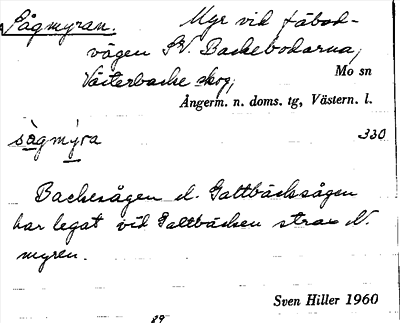 Sågmyran. Myr vid fäbod-
vägen SV. Backebodarna,
Västerbacke skog,
Mo sn
Ångerm. n. doms. tg, Västern. l.
sågmýra 330
Backesågen el. Galtbäckssågen
har legat vid Galtbäcken strax N.
myren.
Sven Hiller 1960
89